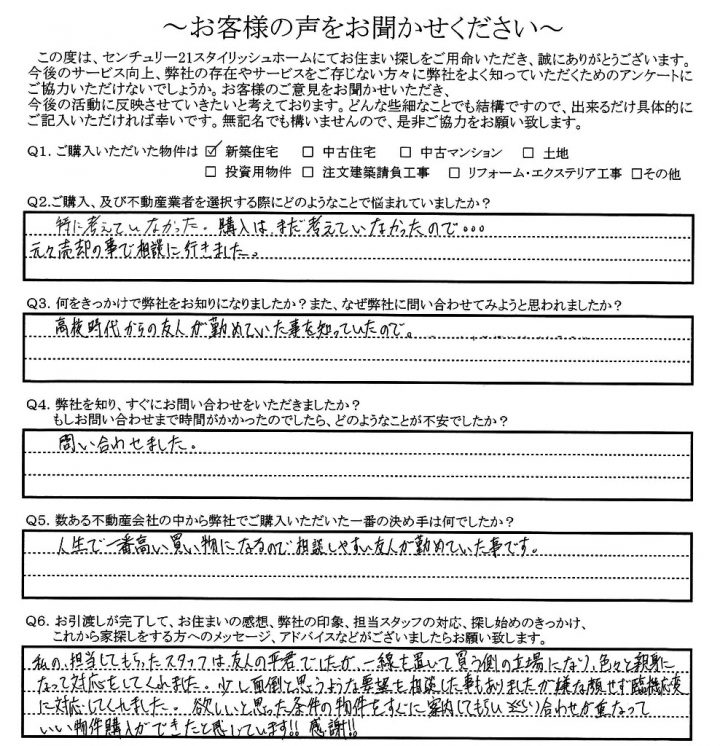 ～お客様の声をお聞かせください～
この度は、センチュリー21スタイリッシュホームにてお住まい探しをご用命いただき、誠にありがとうございます。
今後のサービス向上、弊社の存在やサービスをご存じない方々に弊社をよく知っていただくためのアンケートに
ご協力いただけないでしょうか。お客様のご意見をお聞かせいただき、
今後の活動に反映させていきたいと考えております。どんな些細なことでも結構ですので、出来るだけ具体的に
ご記入いただければ幸いです。無記名でも構いませんので、是非ご協力をお願い致します。
Q1. ご購入いただいた物件は ☑ 新築住宅 □ 中古住宅 □ 中古マンション □ 土地
□ 投資用物件 □ 注文建築請負工事 □ リフォーム・エクステリア工事 □その他
Q2.ご購入、及び不動産業者を選択する際にどのようなことで悩まれていましたか？
特に考えていなかった。購入は、まだ考えていなかったので。。。
元々売却の事で相談に行きました。
Q3. 何をきっかけで弊社をお知りになりましたか？また、なぜ弊社に問い合わせてみようと思われましたか？
高校時代からの友人が勤めていた事を知っていたので。
Q4. 弊社を知り、すぐにお問い合わせをいただきましたか？
もしお問い合わせまで時間がかかったのでしたら、どのようなことが不安でしたか？
問い合わせました。
Q5. 数ある不動産会社の中から弊社でご購入いただいた一番の決め手は何でしたか？
人生で一番高い買い物になるので相談しやすい友人が勤めていた事です。
Q6. お引渡しが完了して、お住まいの感想、弊社の印象、担当スタッフの対応、探し始めのきっかけ、
これから家探しをする方へのメッセージ、アドバイスなどがございましたらお願い致します。
私の、担当してもらったスタッフは友人の平君でしたが、一線を置いて買う側の立場になり、色々と親身に
なって対応をしてくれました。少し面倒と思うような要望も相談した事もありましたが嫌な顔せず臨機応変
に対応してくれました。欲しいと思った条件の物件をすぐに案内してもらい めぐり合わせが重なって
いい物件購入ができたと思しています!! 感謝!!